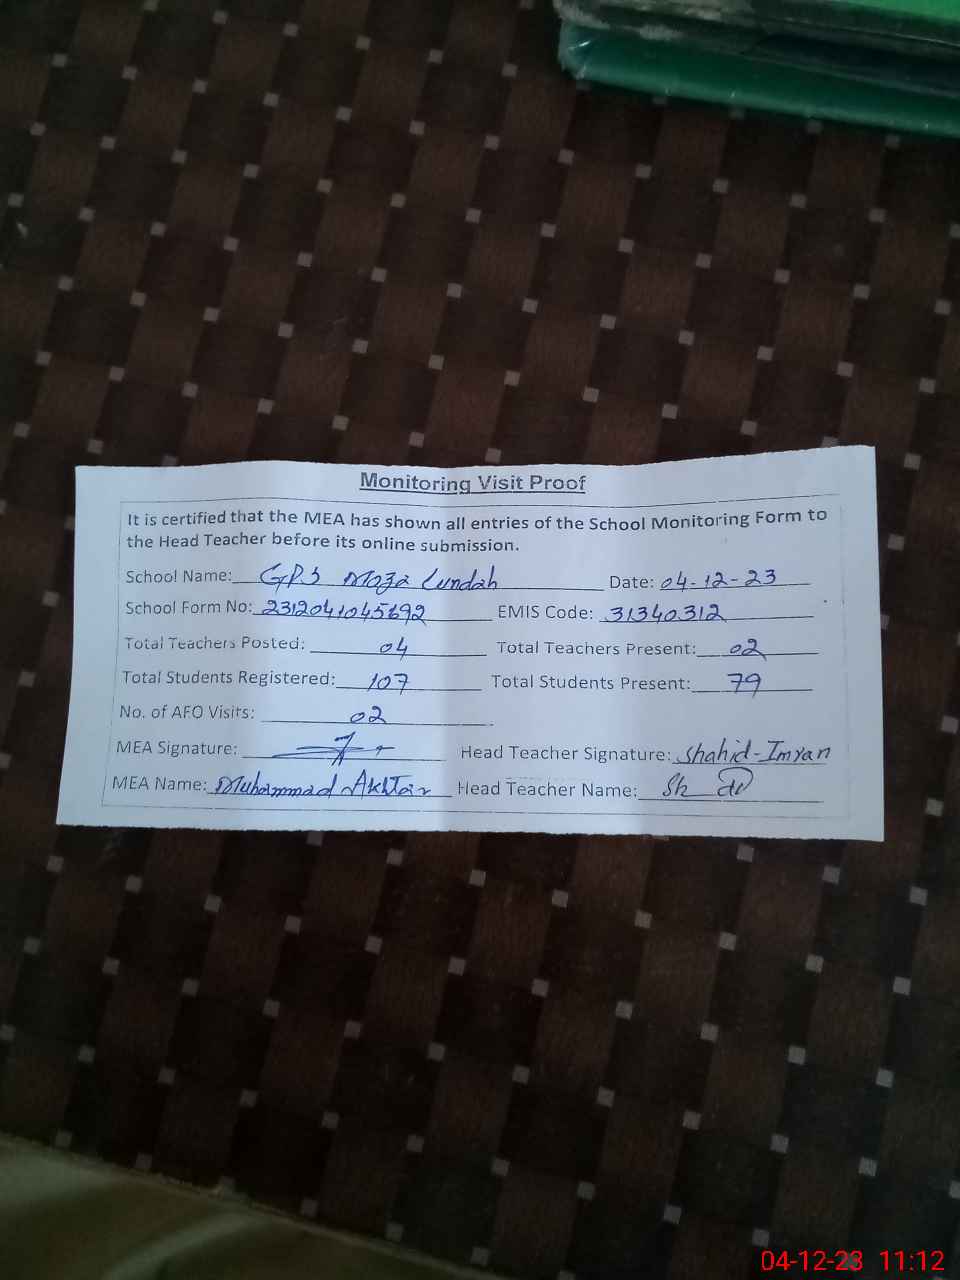 Monitoring Visit Proof
It is certified that the MEA has shown all entries of the School Monitoring Form to
the Head Teacher before its online submission.
School Name: GPS Moza Lundah Date: 04-12-23
School Form No: 2312041045692 EMIS Code: 31340312
Total Teachers Posted: 04 Total Teachers Present: 02
Total Students Registered: 107 Total Students Present: 79
No. of AFO Visits: 02
MEA Signature: Head Teacher Signature: Shahid-Imran
MEA Name: Muhammad Akhtar Head Teacher Name:
04-12-23 11:12